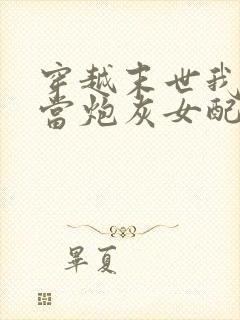 穿越末世我
當炮灰女配
畢夏